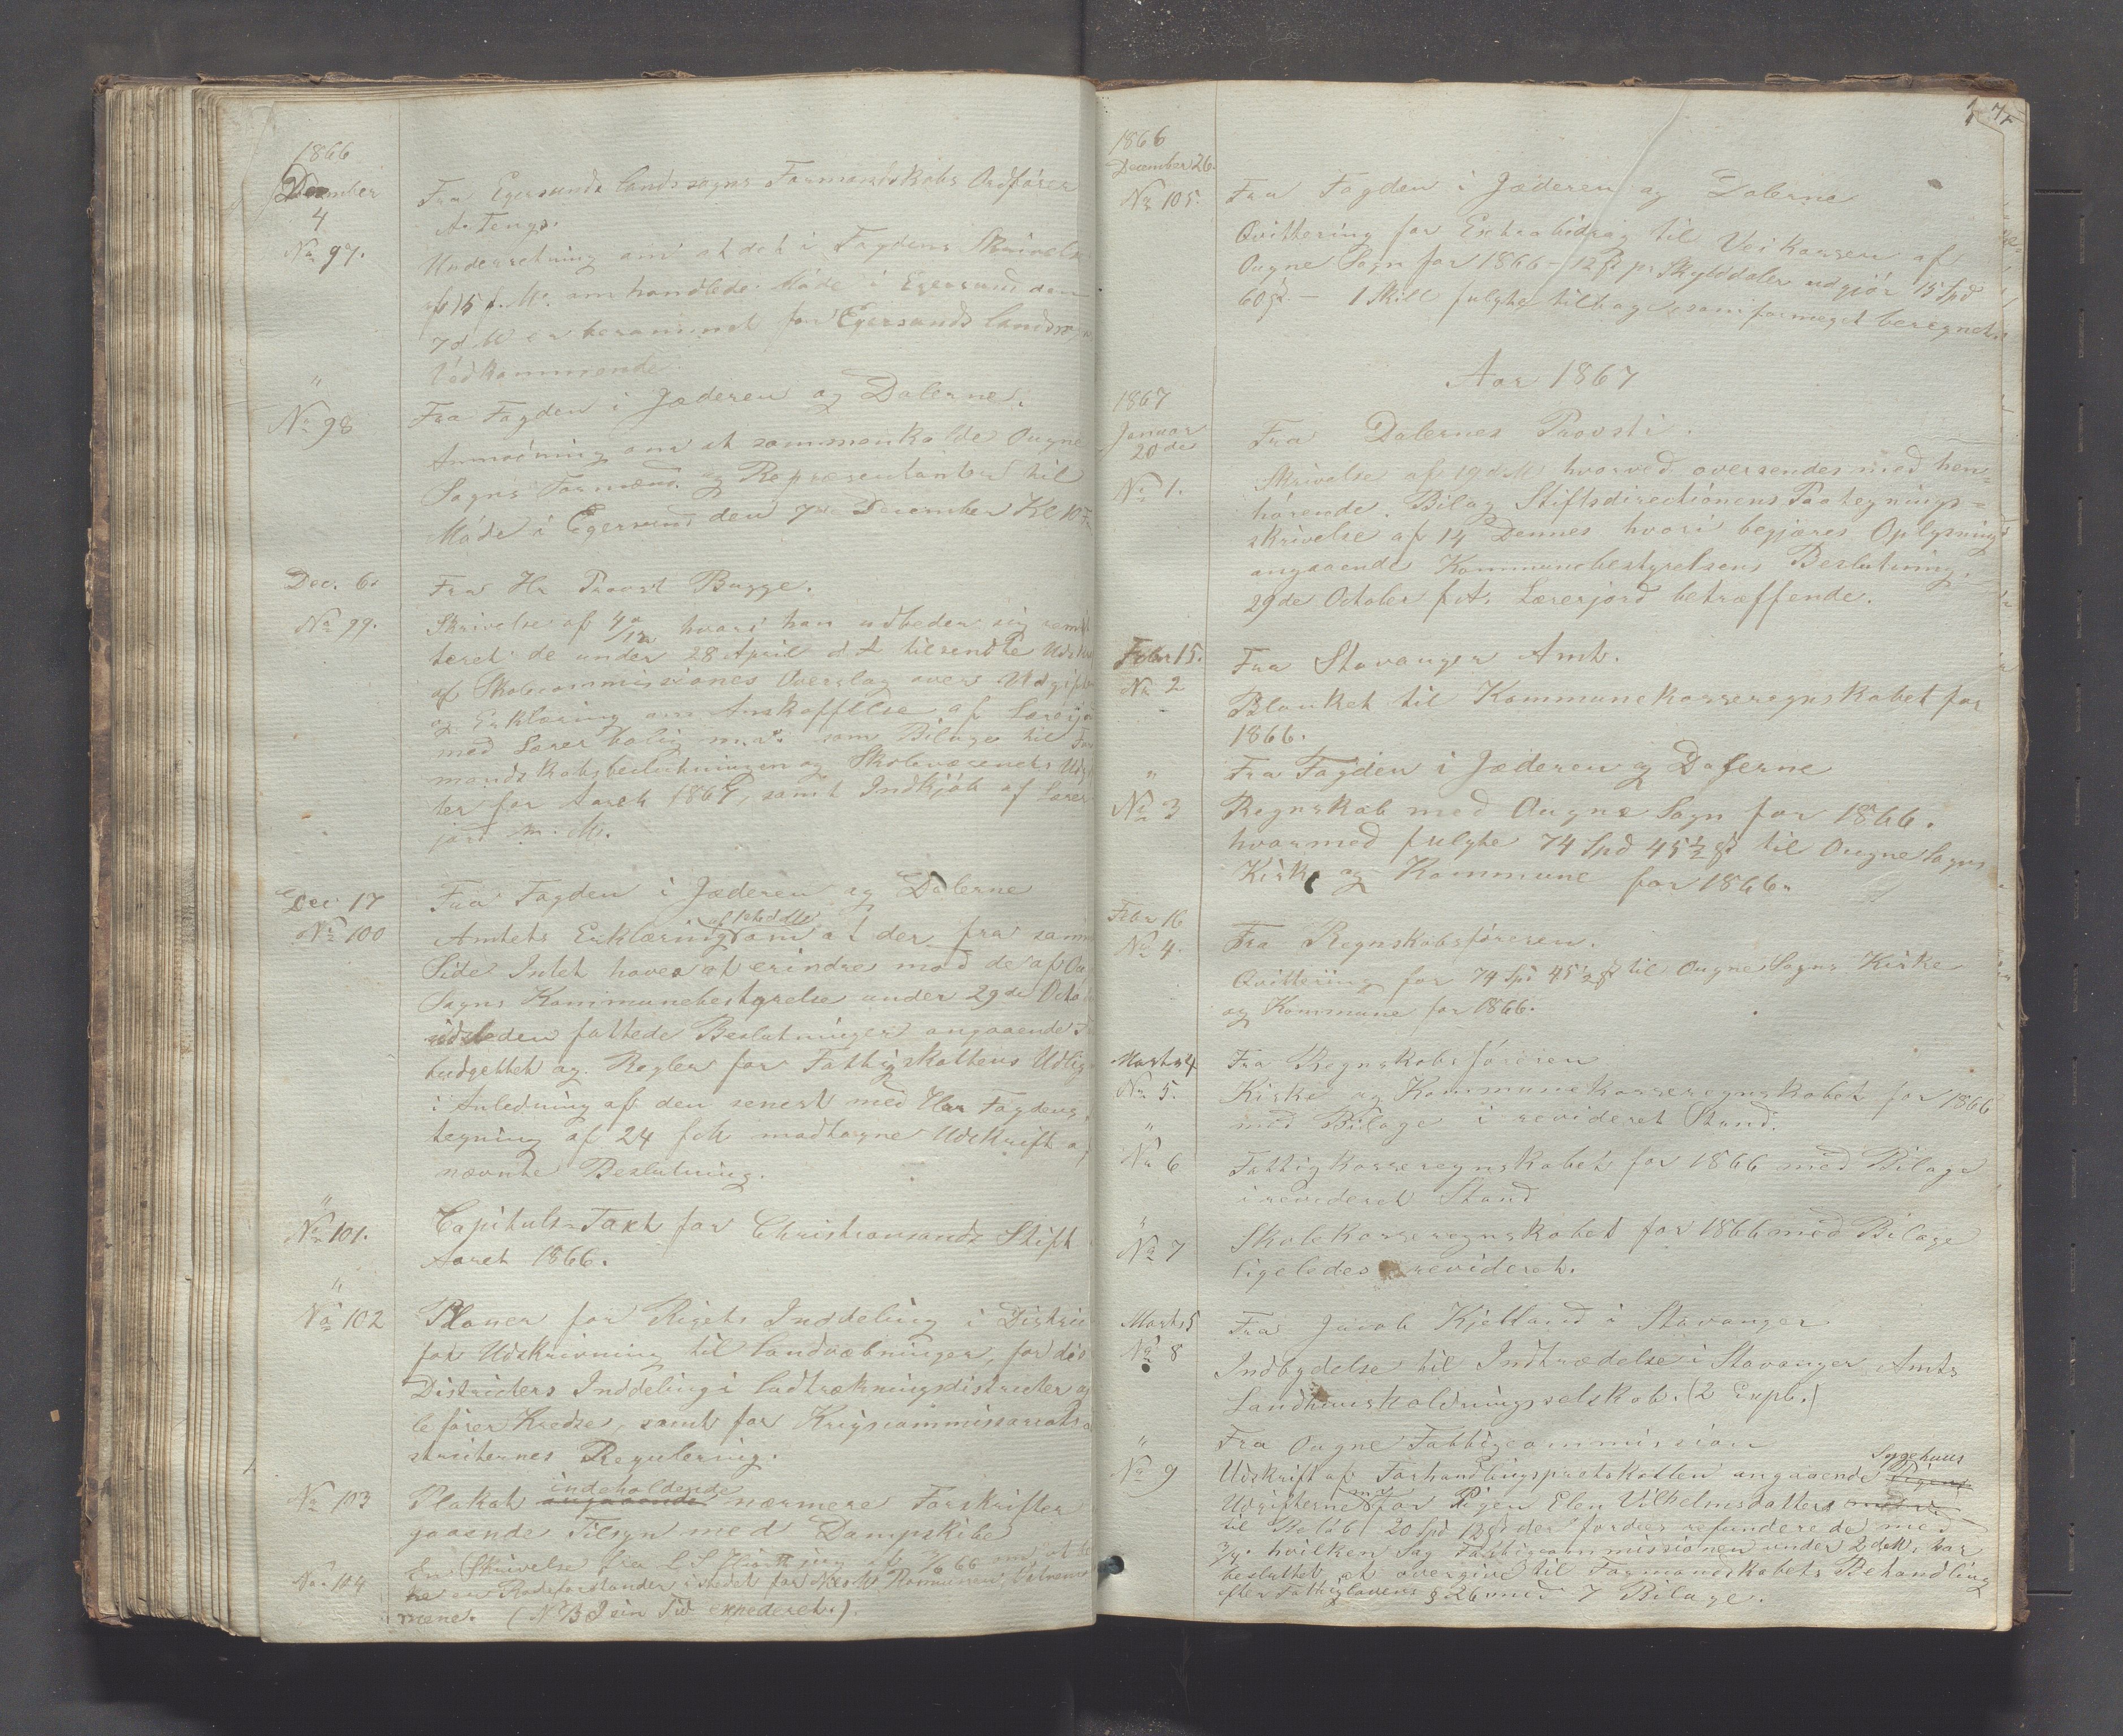 1866
December
4
No 97.
Fra Egersunds landssogns Formandskabs Ordfører
A. Tengs.
Underretning om at det i Fogdens Skrivelse
af 15 f. M. omhandlede Møde i Egersund den
7 d M er berammet for Egersunds landsogn
Vedkommende.
"
No 98
Fra Fogden i Jæderen og Dalerne.
Anmodning om at sammenkalde Ougne
Sogns Formænd og Repræsentanter til
Møde i Egersund den 7de December Kl 10
Dec. 6.
No 99.
Fra Hr Provst Bugge.
Skrivelse af 4/12 hvori han udbeder sig remit
teret de under 28 April d A tilsendte Uds
af Skolecommissiones Overslag over Udgif
og Erklæring om Anskaffelse af Lærerjo
med Lærerbolig m.v. som Bilage til For
mandskabsbeslutningen og Skolevæsenets Udg
ter for Aaret 1867, samt Indkjøb af Lærer
jord m. M.
Dec 17
No 100
Fra Fogden i Jæderen og Dalerne
Amtets Erklæring om at der fra samme
Side Intet haves at erindre mod de af Ou
Sogns Kommunebestyrelse under 29de Octo
sidstleden fattede Beslutninger angaaende
budgettet og Regler for Fattigskattens Udlig
i Anledning af den senest med Herr Fogdens
tegning af 24 f M modtagne Udskrift af
nævnte Beslutning.
"
No 101.
Capituls-Taxt for Christiansands Stift
Aaret 1866.
"
No 102
Planer for Rigets Inddeling i Distric
for Udskrivning til Landvæbninger, for dis
Districters Inddeling i Udtrækningsdistricter og
leførerKredse, samt for Krigscommissariats
stricternes Regulering.
No 103
indeholdende
Plakat angaaende nærmere Forskrifter
gaaende Tilsyn med Dampskibe
No 104
En Skrivelse fra
en Rodeforstander istedet for
mene. (NB I sin Tid expederet.)
1866
December 26.
No 105.
Fra Fogden i Jæderen og Dalerne
Qvittering for Extrabidrag til Veikassen af
Ougne Sogn for 1866 - 12 ß pr Skylddaler udgjør 15 Spd
60 ß. - 1 Skill fulgte tilbage, som formeget beregnet.
Aar 1867
1867
Januar
20de
No 1.
Fra Dalernes Provsti.
Skrivelse af 19 d M hvorved oversendes med hen-
hørende Bilag Stiftsdirectionens Paategnings-
skrivelse af 14 Dennes hvori begjæres Oplysning
angaaende Kommunebestyrelsens Beslutning
29de October f A. Lærerjord betræffende.
Febr 15.
No 2
Fra Stavanger Amt.
Blanket til Kommunekasseregnskabet for
1866.
"
No 3
Fra Fogden i Jæderen og Dalerne
Regnskab med Ougne Sogn for 1866.
hvormed fulgte 74 Spd 45½ ß til Ougne Sogns
Kirke og Kommune for 1866.
Febr 16
No 4.
Fra Regnskabsføreren.
Qvittering for 74 Spd 45½ ß til Ougne Sogns Kirke
og Kommune for 1866.
Marts 4
No 5.
Fra Regnskabsføreren
Kirke og Kommunekasseregnskabet for 1866
med Bilage i revideret Stand.
"
No 6
Fattigkasseregnskabet for 1866 med Bilage
i revideret Stand
"
No 7
Skolekasseregnskabet for 1866 med Bilage
ligeledes revideret.
Marts 5
No 8
Fra Jacob Kjelland i Stavanger
Indbydelse til Indtrædelse i Stavanger Amts
Landhuusholdningsselskab. (2 Expl.)
"
No 9
Fra Ougne Fattigcommission
Sygehuus
Udskrift af Forhandlingsprotokollen angaaende
Udgifterne for Pigen Elen Vilhelmsdatter
til Beløb 20 Spd 12 ß der fordres refunderede med
hvilken Sag Fattigcommissionen under 2 ds.
besluttet at overgive til Formandskabets Behandling
efter Fattiglovens § 26 med 7 Bilage.